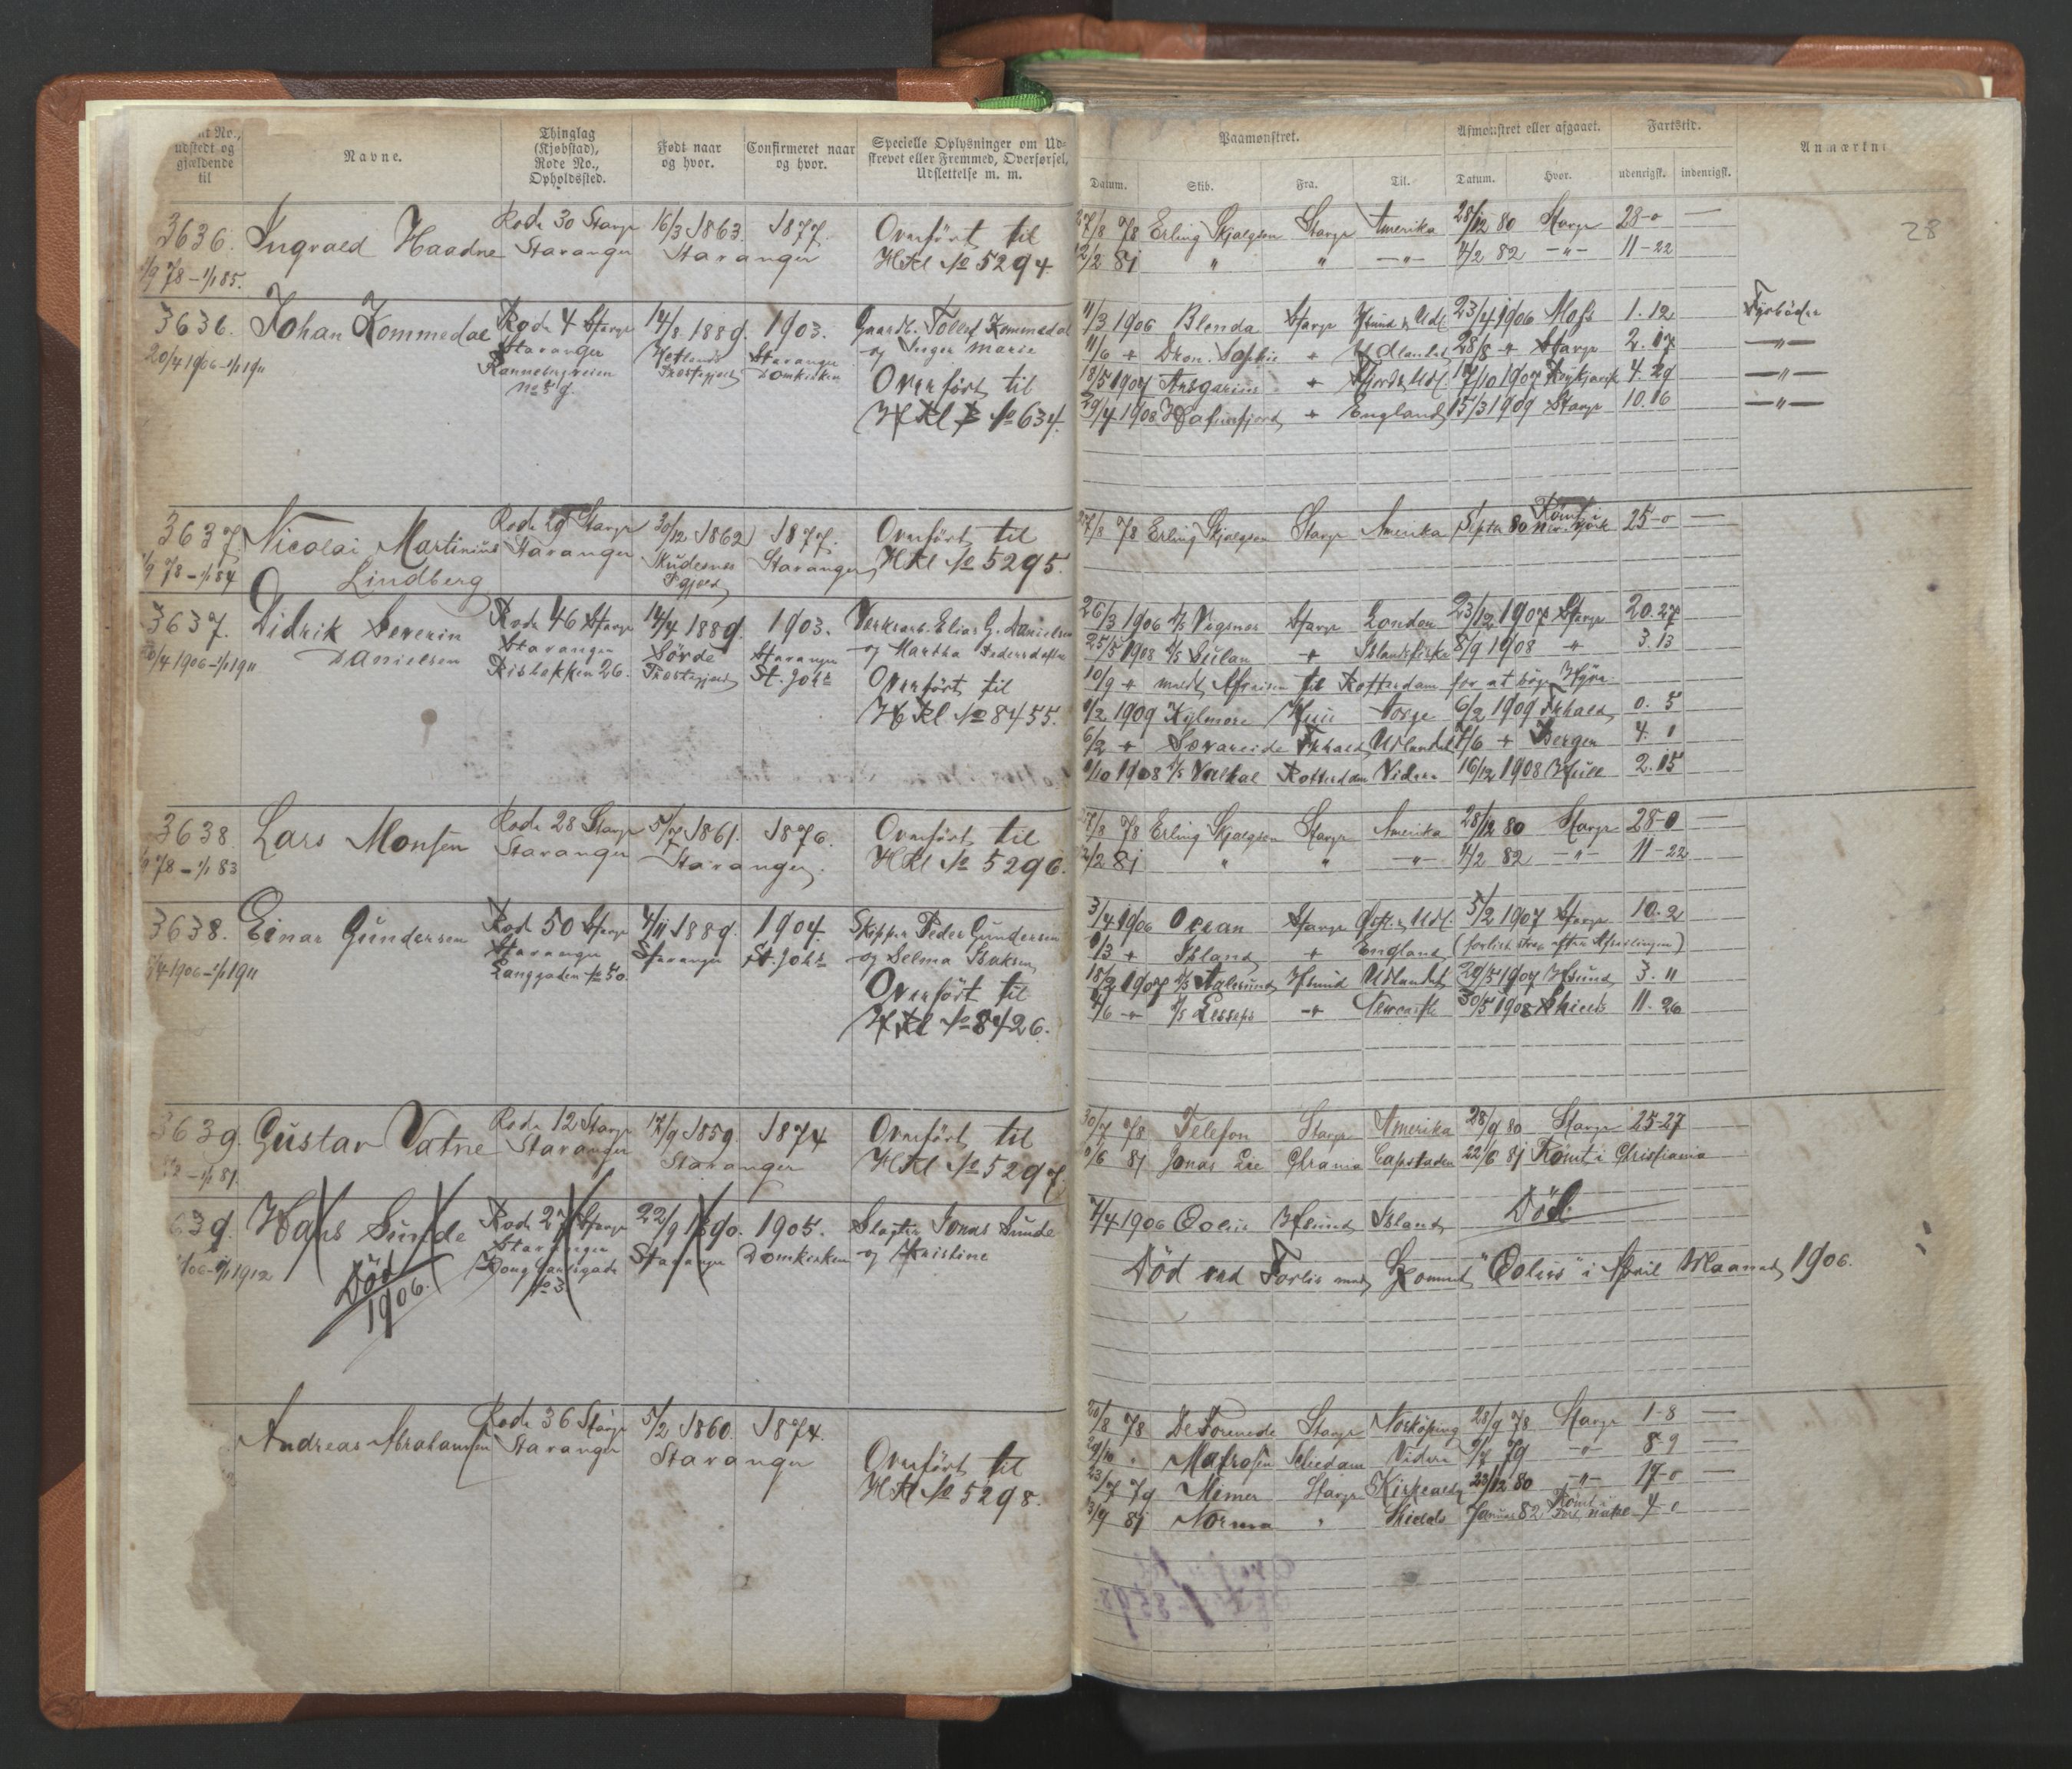 nt No., udstedt og gjældende til
Navne.
Thinglag (Kjøbstad), Rode No., Opholdssted.
Født naar og hvor.
Confirmeret naar og hvor.
Specielle Oplysninger om Udskrevet eller Fremmed, Overførsel, Udslettelse m. m.
Paamønstret.
Afmønstret eller afgaaet.
Fartstid.
Anmærkn
Datum. Skib. Fra. Til. Datum. Hvor. udenrigsk. indenrigsk.
28
3636. Ingvald Haadne Rode 30 Stavgr 16/3 1863. 1877. Overført til
1/9 78 - 1/1 85. Stavanger Stavanger HRl No 5294
27/8 78 Erling Skjalgson Stavgr Amerika 28/12 80 Stavgr 28-0 —
12/2 81 " " -"- 4/2 82 -"- 11-22
3636. Johan Kommedal Rode 4 Stavgr 14/8 1889. 1903. Gaardbr. Tollef Kommedal
20/4 1906 - 1/1 1911 Stavanger Hetlands Stavanger og Inger Marie
Præstegjeld Domkirken Overført til
No 59. HRl No 634.
11/3 1906 Blenda Stavgr Hsund & Udl. 23/4 1906 Moss 1.12 Fyrbøder
11/6 + Dron. Sophie + Udlandet 28/8 + Stavgr 2.17 -"-
18/5 1907 Ansgarius + 17/10 1907 Reykjavik 4.29 -"-
29/4 1908 Hafursfjord + England 15/3 1909 Stavgr 10.16 -"-
3637. Nicolai Martinius Rode 29 Stavgr 30/12 1862 1877. Overført til
1/9 78 - 1/1 84 Lindberg Stavanger Skudesnes Stavanger HRl No 5295.
Pgjeld
27/8 78 Erling Skjalgson Stavgr Amerika Septr 80 Rømt i New York 25-0 —
3637. Didrik Severin Rode 46 Stavgr 14/4 1889. 1903. Verksarb. Elias G. Danielsen
20/4 1906 - 1/1 1911 Danielsen Stavanger Stavanger og Martha Pedersdatter
Risbakken 26. Præstegjeld St. Johs Overført til
HRl No 8455.
26/3 1906 D/S Vigsnes Stavgr London 23/12 1907 Stavgr 20.27
25/5 1908 D/S Sulan + Islandsfiske 8/9 1908 + 3.13
10/9 + meldt Afreise til Rotterdam for at søge Hyre
1/2 1909 Kylmore Norge 6/2 1909 Frhald 0.5
6/2 + Sovareide Frhald Udlandet 7/6 + Bergen 4.1
1/10 1908 D/S Valhal Rotterdam Videre 16/12 1908 Hull 2.15
3638 Lars Monsen Rode 28 Stavgr 5/7 1861. 1876. Overført til
1/9 78 - 1/1 83 Stavanger Stavanger. HRl No 5296.
27/8 78 Erling Skjalgson Stavgr Amerika 28/12 80 Stavgr 28-0 —
12/2 81 " " -"- 4/2 82 -"- 11-22
3638. Einar Gundersen Rode 50 Stavgr 4/11 1889. 1904. Skipper Peder Gundersen
4 1906 - 1/1 1911 Stavanger Stavanger St. Johs og Selma Isaksen
Langgaden No 50. Overført til
HRl No 8426.
3/4 1906 Ocean Stavgr Østl. & Udl. 5/2 1907 Stavgr 10.2
1/3 + Island + England (forlist strax efter Afseilingen)
18/2 1907 D/S Aalesund Hsund Udlandet 29/5 1907 Hsund 3.11
4/6 + D/S Lesseps + Newcastle 30/5 1908 Shields 11.26
3639. Gustav Vatne Rode 12 Stavgr 17/9 1859. 1874 Overført til
78 - 1/1 81. Stavanger Stavanger HRl No 5297.
30/7 78 Telefon Stavgr Amerika 28/9 80 Stavgr 25-27
1/6 81 Jonas Lie Chrania Capstaden 22/6 81 Rømt i Christiania
639. Hans Sunde Rode 27 Stavgr 22/9 1890. 1905. Slagter Jonas Sunde
1/06 - 1/1 1912 Stavanger Stavanger Domkirken og Kristine
Død 1906. Kong Carlsgade No 3
7/4 1906 Eolus Hsund Island Død.
Død ved Forlis med "Eolus" i April Maaned 1906.
Andreas Abrahamsen Rode 36 Stavgr 5/2 1860. 1874.
Stavanger Stavanger Overført til
HRl No 5298.
20/8 78 De Forenede Stavgr Norkøping 28/9 78 Stavgr 1-8 —
29/10 " Matrosen Schiedam Videre 9/7 79 -"- 8-9 —
23/7 79 Mimer Stavgr Kirkcaldy 23/12 80 -"- 17-0 —
3/9 81 Norma " Shields Januar 82 Rømt i 4-0